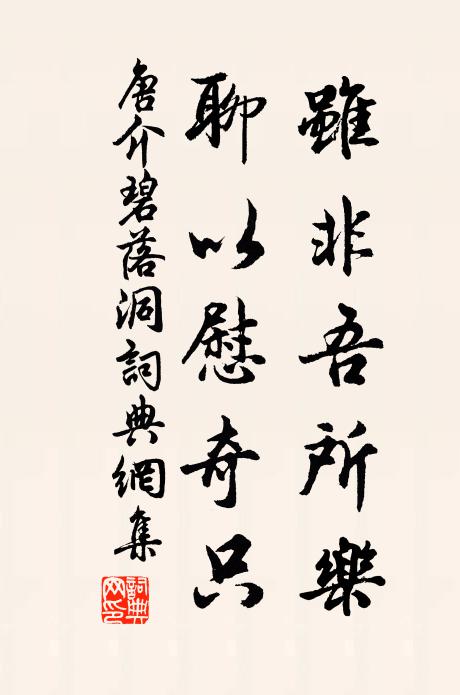 雖非吾所樂
聊以慰奇只
唐介碧落洞詞典網集
詞典
网印